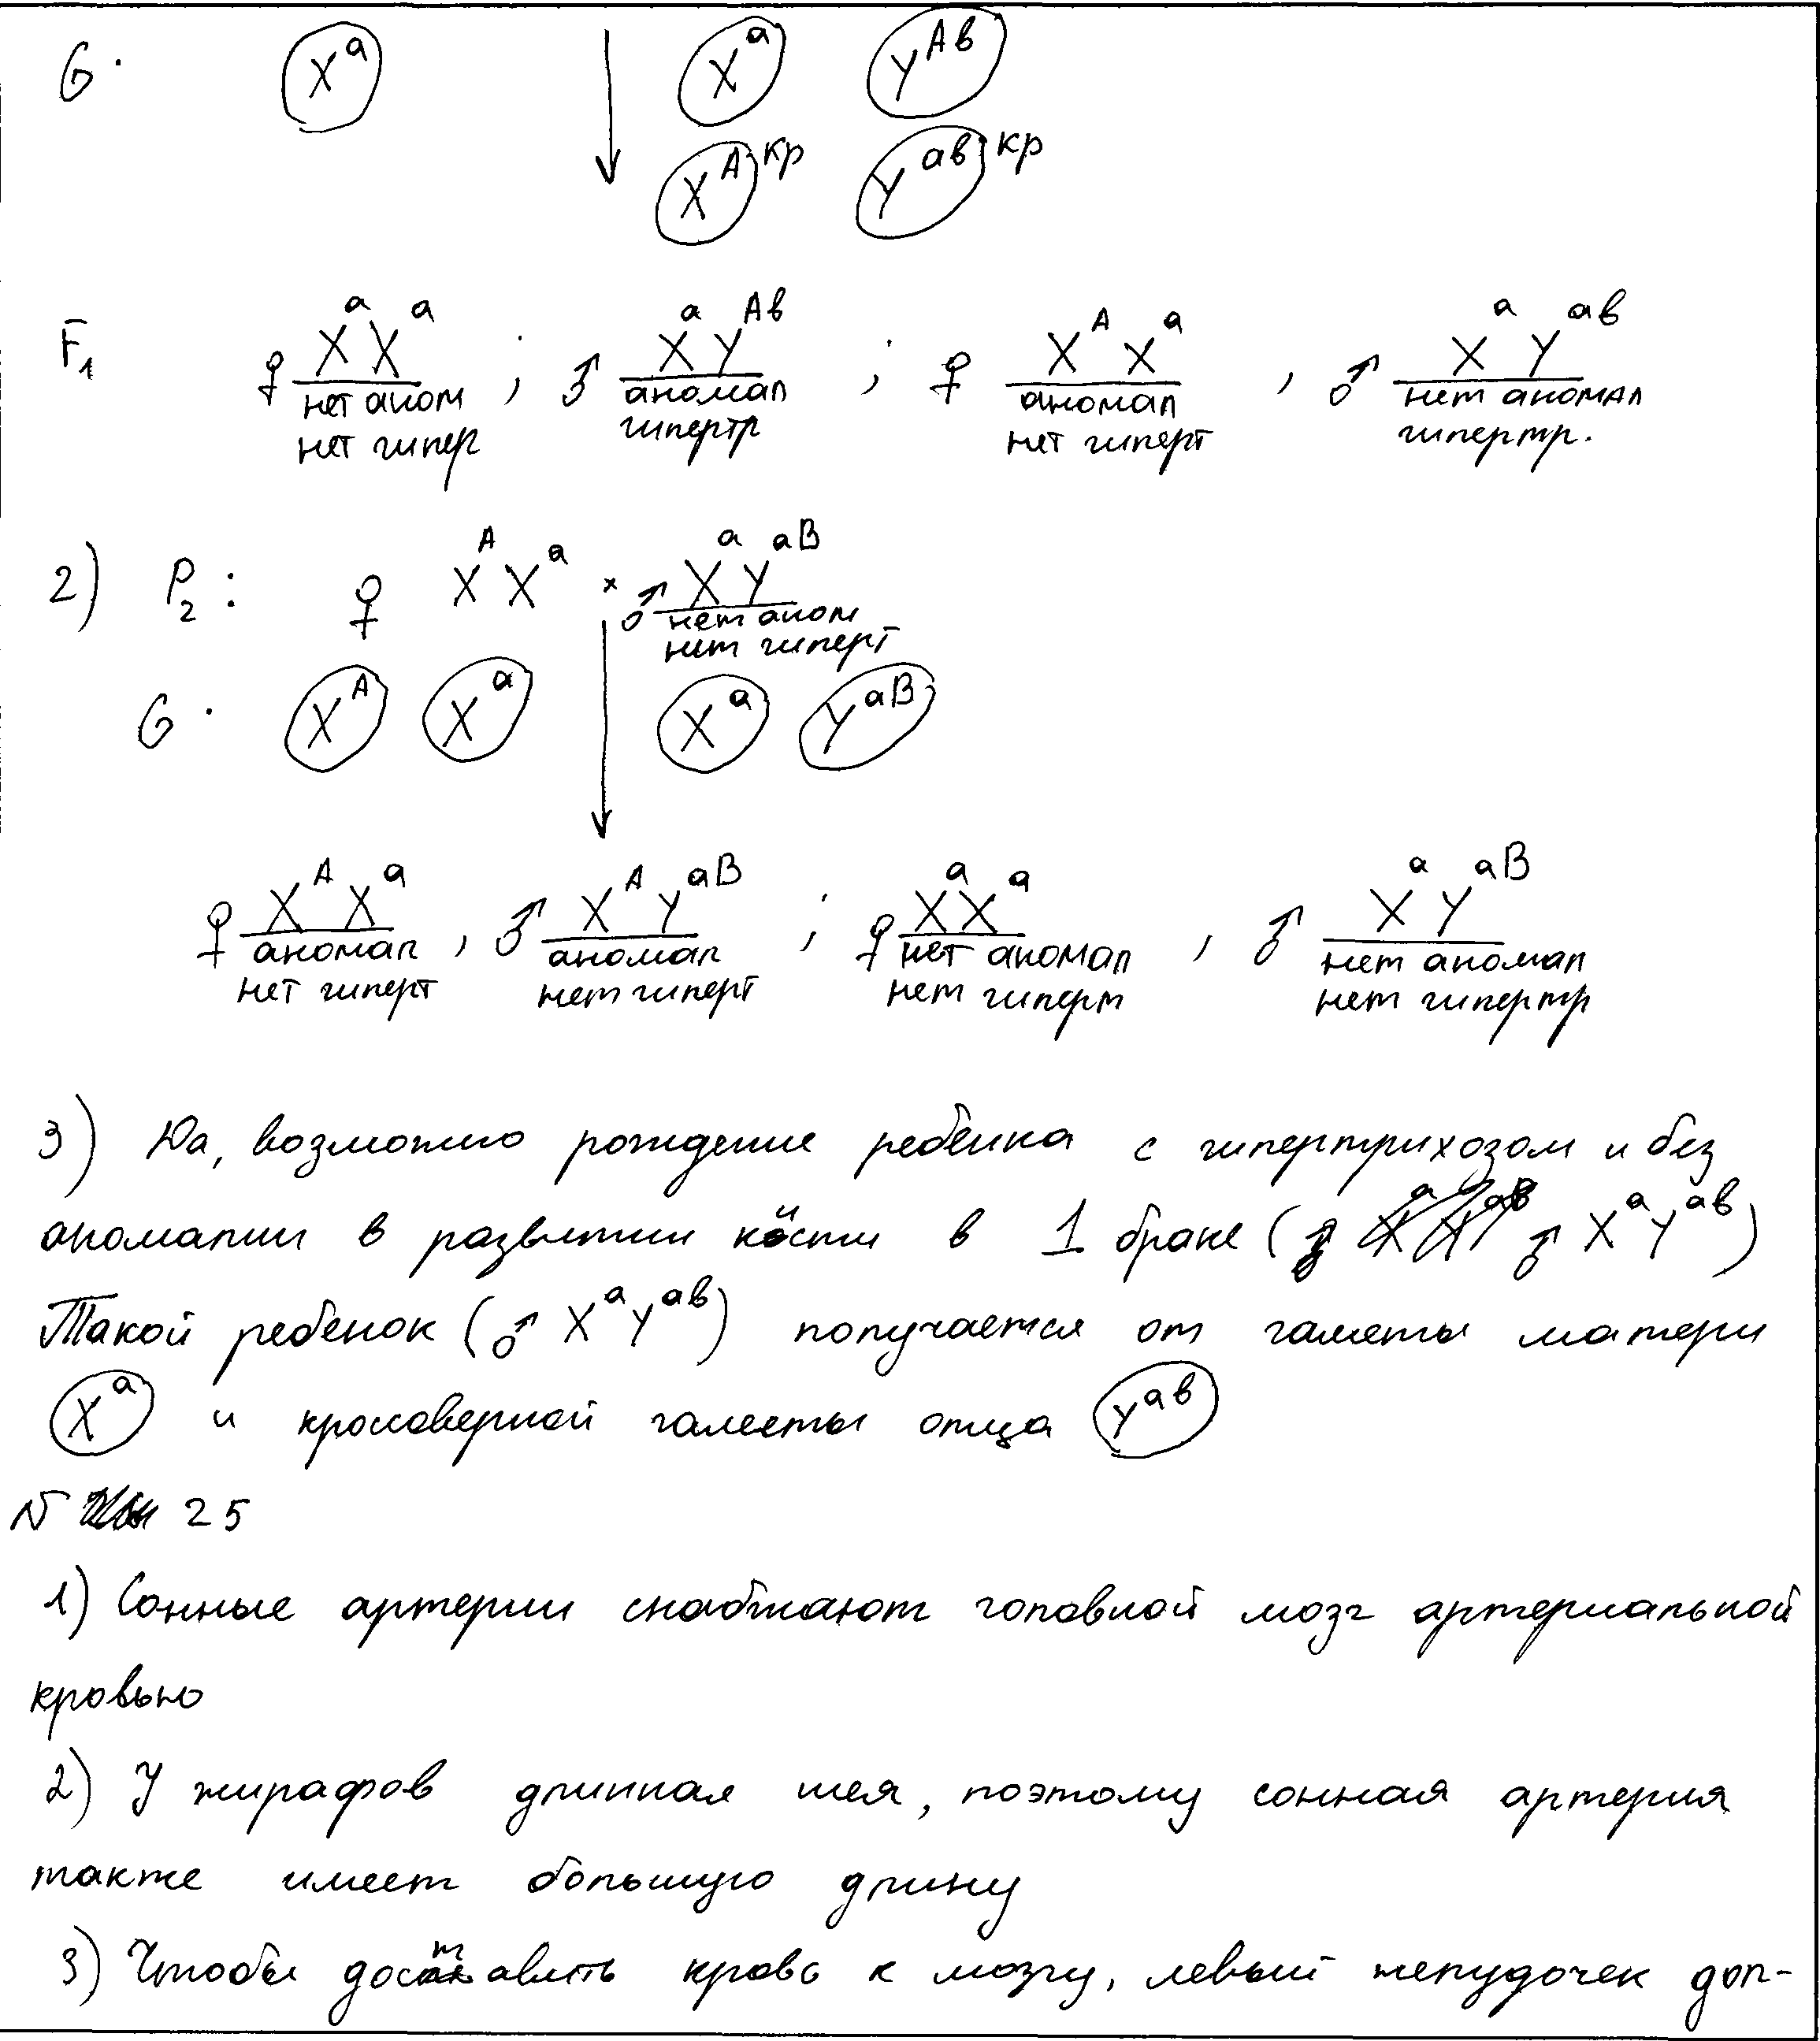 G. X^a X^a Y^Ab
X^A кр Y^ab кр
F₁ ♀ X^a X^a ; ♂ X^a Y^Ab ; ♀ X^A X^a , ♂ X^a Y^ab
нет аном аномал аномал нет аномал
нет гипер гипертр нет гиперт гипертр.
2) P₂: ♀ X^A X^a × ♂ X^a Y^aB
нет аном
нет гиперт
G. X^A X^a X^a Y^aB
♀ X^A X^a , ♂ X^A Y^aB ; ♀ X^a X^a , ♂ X^a Y^aB
аномал аномал нет аномал нет аномал
нет гиперт нет гиперт нет гиперт нет гипертр
3) Да, возможно рождение ребенка с гипертрихозом и без
аномалии в развитии кисти в 1 браке ( ♂ X^a Y^ab)
Такой ребенок (♂ X^a Y^ab) получается от гаметы матери
X^a и кроссоверной гаметы отца Y^ab
N 25
1) Сонные артерии снабжают головной мозг артериальной
кровью
2) У жирафов длинная шея, поэтому сонная артерия
также имеет большую длину
3) Чтобы доставить кровь к мозгу, левый желудочек дол-